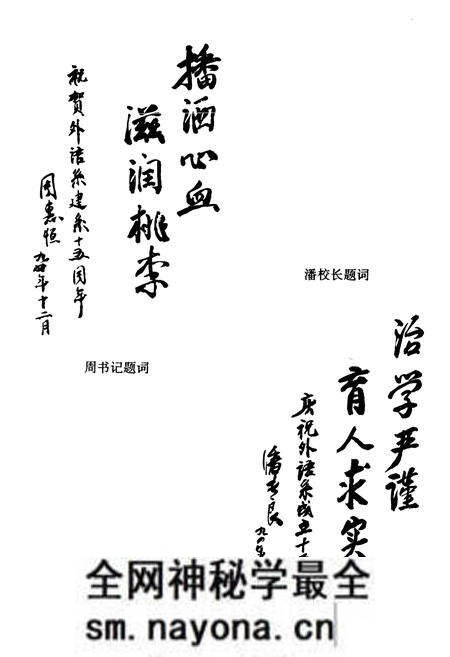 播洒心血
滋润桃李
祝贺外语系建系十五周年
周惠恒
九四年十二月
周书记题词
潘校长题词
治学严谨
育人求实
庆祝外语系成立十
潘
良
九四年
全网神秘学最全
sm.nayona.cn